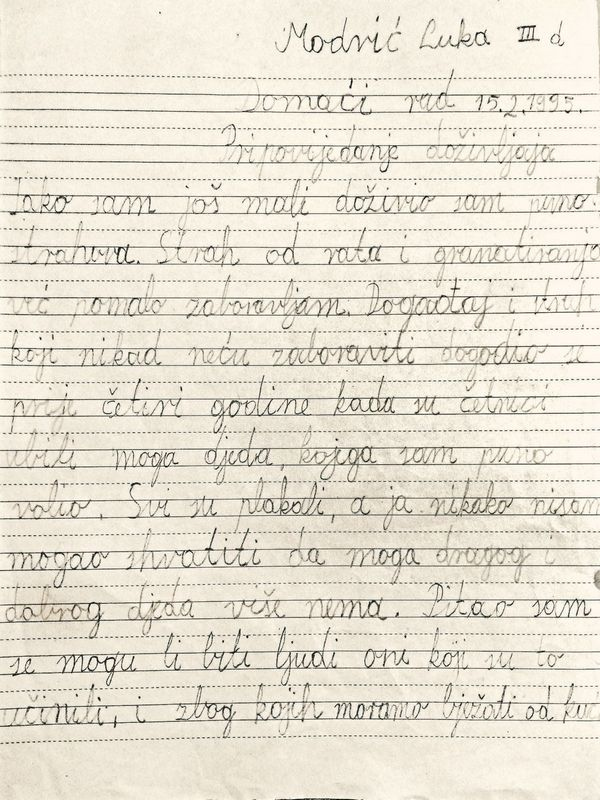 Modrić Luka III d
Domaći rad 15.2.1995.
Pripovijedanje doživljaja
Iako sam još mali doživio sam puno
strahova. Strah od rata i granatiranja
već pomalo zaboravljam. Događaj i strah
koji nikad neću zaboraviti dogodio se
prije četiri godine kada su četnici
ubili moga djeda, kojega sam puno
volio. Svi su plakali, a ja nikako nisam
mogao shvatiti da moga dragog i
dobrog djeda više nema. Pitao sam
se mogu li biti ljudi oni koji su to
učinili, i zbog kojih moramo bježati od kuć